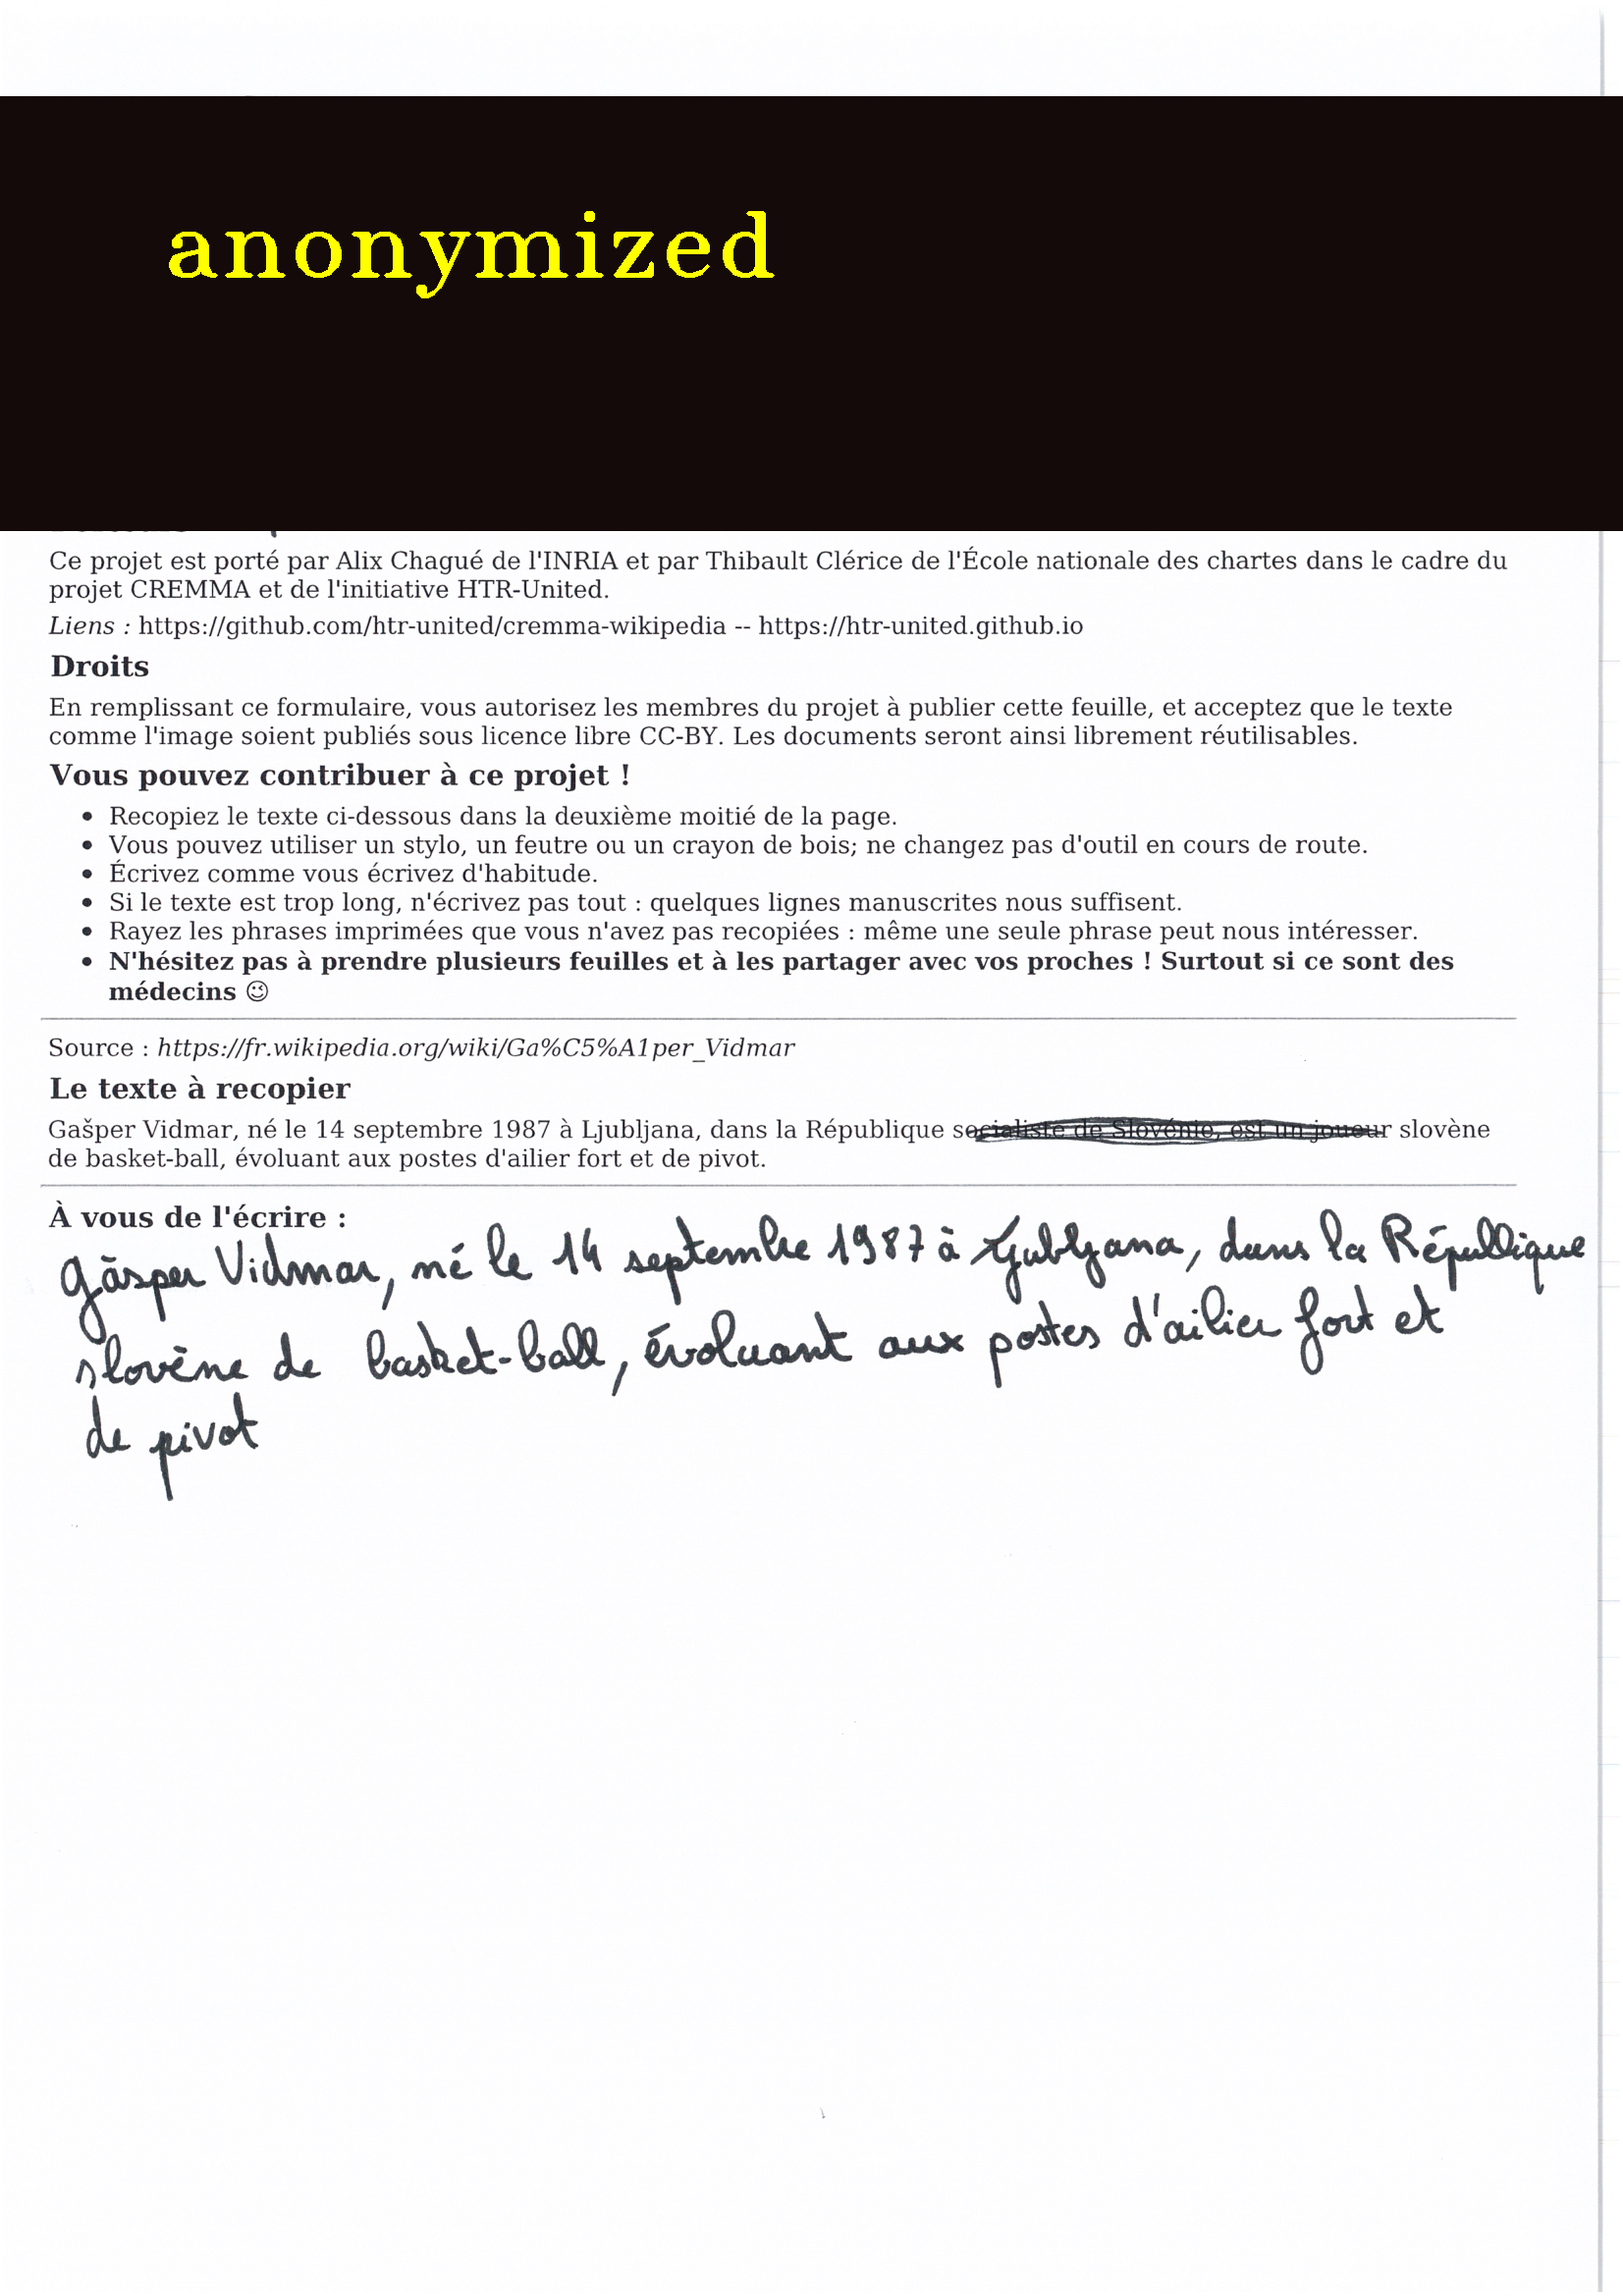 anonymized
Ce projet est porté par Alix Chagué de l'INRIA et par Thibault Clérice de l'École nationale des chartes dans le cadre du
projet CREMMA et de l'initiative HTR-United.
Liens : https://github.com/htr-united/cremma-wikipedia -- https://htr-united.github.io
Droits
En remplissant ce formulaire, vous autorisez les membres du projet à publier cette feuille, et acceptez que le texte
comme l'image soient publiés sous licence libre CC-BY. Les documents seront ainsi librement réutilisables.
Vous pouvez contribuer à ce projet !
• Recopiez le texte ci-dessous dans la deuxième moitié de la page.
• Vous pouvez utiliser un stylo, un feutre ou un crayon de bois; ne changez pas d'outil en cours de route.
• Écrivez comme vous écrivez d'habitude.
• Si le texte est trop long, n'écrivez pas tout : quelques lignes manuscrites nous suffisent.
• Rayez les phrases imprimées que vous n'avez pas recopiées : même une seule phrase peut nous intéresser.
• N'hésitez pas à prendre plusieurs feuilles et à les partager avec vos proches ! Surtout si ce sont des
médecins 😉
Source : https://fr.wikipedia.org/wiki/Ga%C5%A1per_Vidmar
Le texte à recopier
Gašper Vidmar, né le 14 septembre 1987 à Ljubljana, dans la République socialiste de Slovénie, est un joueur slovène
de basket-ball, évoluant aux postes d'ailier fort et de pivot.
À vous de l'écrire :
Gãsper Vidmar, né le 14 septembre 1987 à Ljubljana, dans la République
slovène de basket-ball, évoluant aux postes d'ailier fort et
de pivot